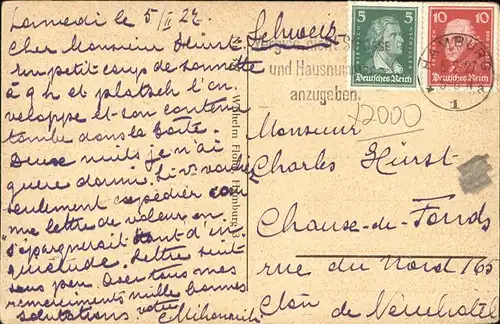 Samedi le 5/II 27.
Cher Monsieur Hürst
un petit coup de sonnette
à 9 h et platsch l'en
veloppe et son contenu
tombe dans la boîte.
Deux nuits je n'ai
guère dormi.
seulement expédier com
me lettre de valeur on
s'épargnerait tant d'in
quiétude. Lettre suit
sous peu. Avec tous mes
remerciments mille bonnes
salutations votre
Schweiz
und Hausnum
anzugeben.
72000
5 5
Deutsches Reich
10 10
Deutsches Reich
HAMBURG
1
Wilhelm Hamburg 13
Monsieur
Charles Hürst
Chaux-de-Fonds
rue du Nord 165
Cton de Neuchatel